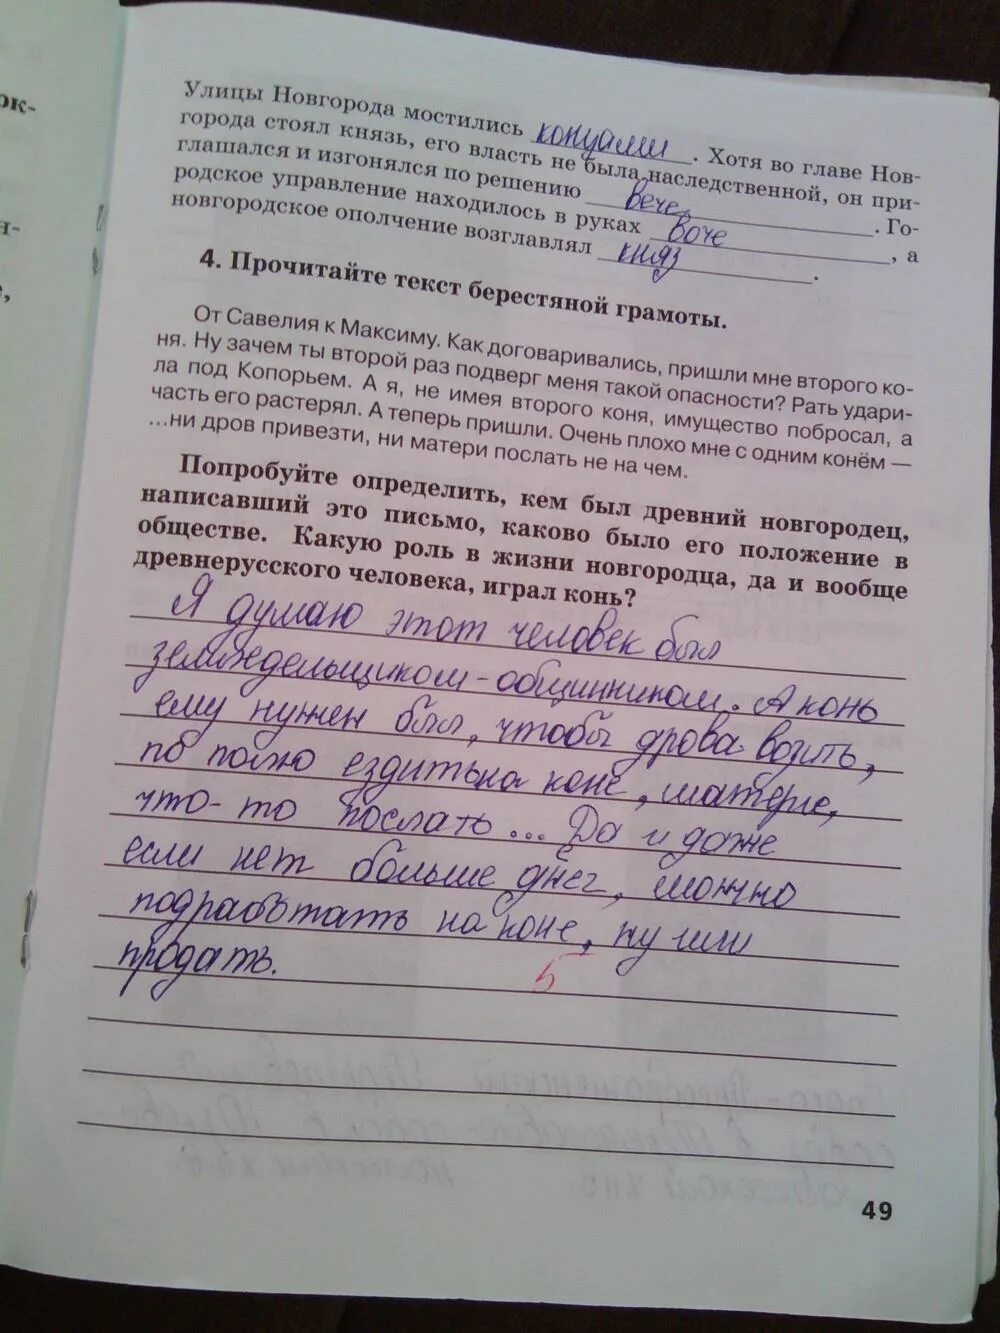 рк-
н-
е,
Улицы Новгорода мостились концами. Хотя во главе Нов-
города стоял князь, его власть не была наследственной, он при-
глашался и изгонялся по решению вече. Го-
родское управление находилось в руках воче, а
новгородское ополчение возглавлял княз.
4. Прочитайте текст берестяной грамоты.
От Савелия к Максиму. Как договаривались, пришли мне второго ко-
ня. Ну зачем ты второй раз подверг меня такой опасности? Рать удари-
ла под Копорьем. А я, не имея второго коня, имущество побросал, а
часть его растерял. А теперь пришли. Очень плохо мне с одним конём —
...ни дров привезти, ни матери послать не на чем.
Попробуйте определить, кем был древний новгородец,
написавший это письмо, каково было его положение в
обществе. Какую роль в жизни новгородца, да и вообще
древнерусского человека, играл конь?
Я думаю этот человек был
земледельщиком-общинником. А конь
ему нужен был, чтобы дрова возить,
по полю ездить на коне, матере,
что-то послать... Да и даже
если нет больше днег, можно
подработать на коне, ну или
продать.
5
49